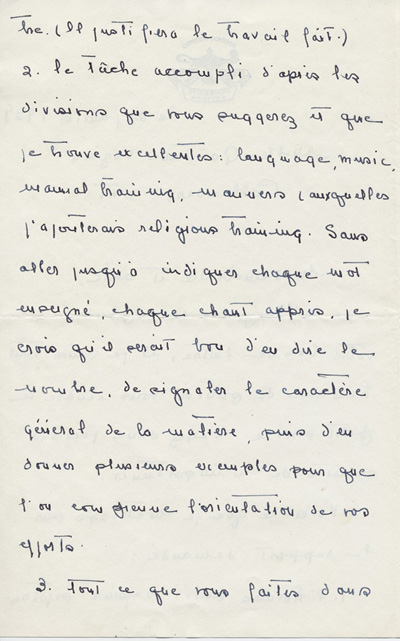 tre. (Il justifiera le travail fait.)
2. le tâche accompli d'après les
divisions que vous suggerez et que
je trouve excellentes: language, music,
manual training, manners (auxquelles
j'ajouterais religious training. Sans
aller jusqu'à indiquer chaque mot
enseigné, chaque chant appris, je
crois qu'il serait bon d'en dire le
nombre, de signaler le caractère
général de la matière, puis d'en
donner plusieurs exemples pour que
l'on comprenne l'orientation de vos
efforts.
3. tout ce que vous faites dans